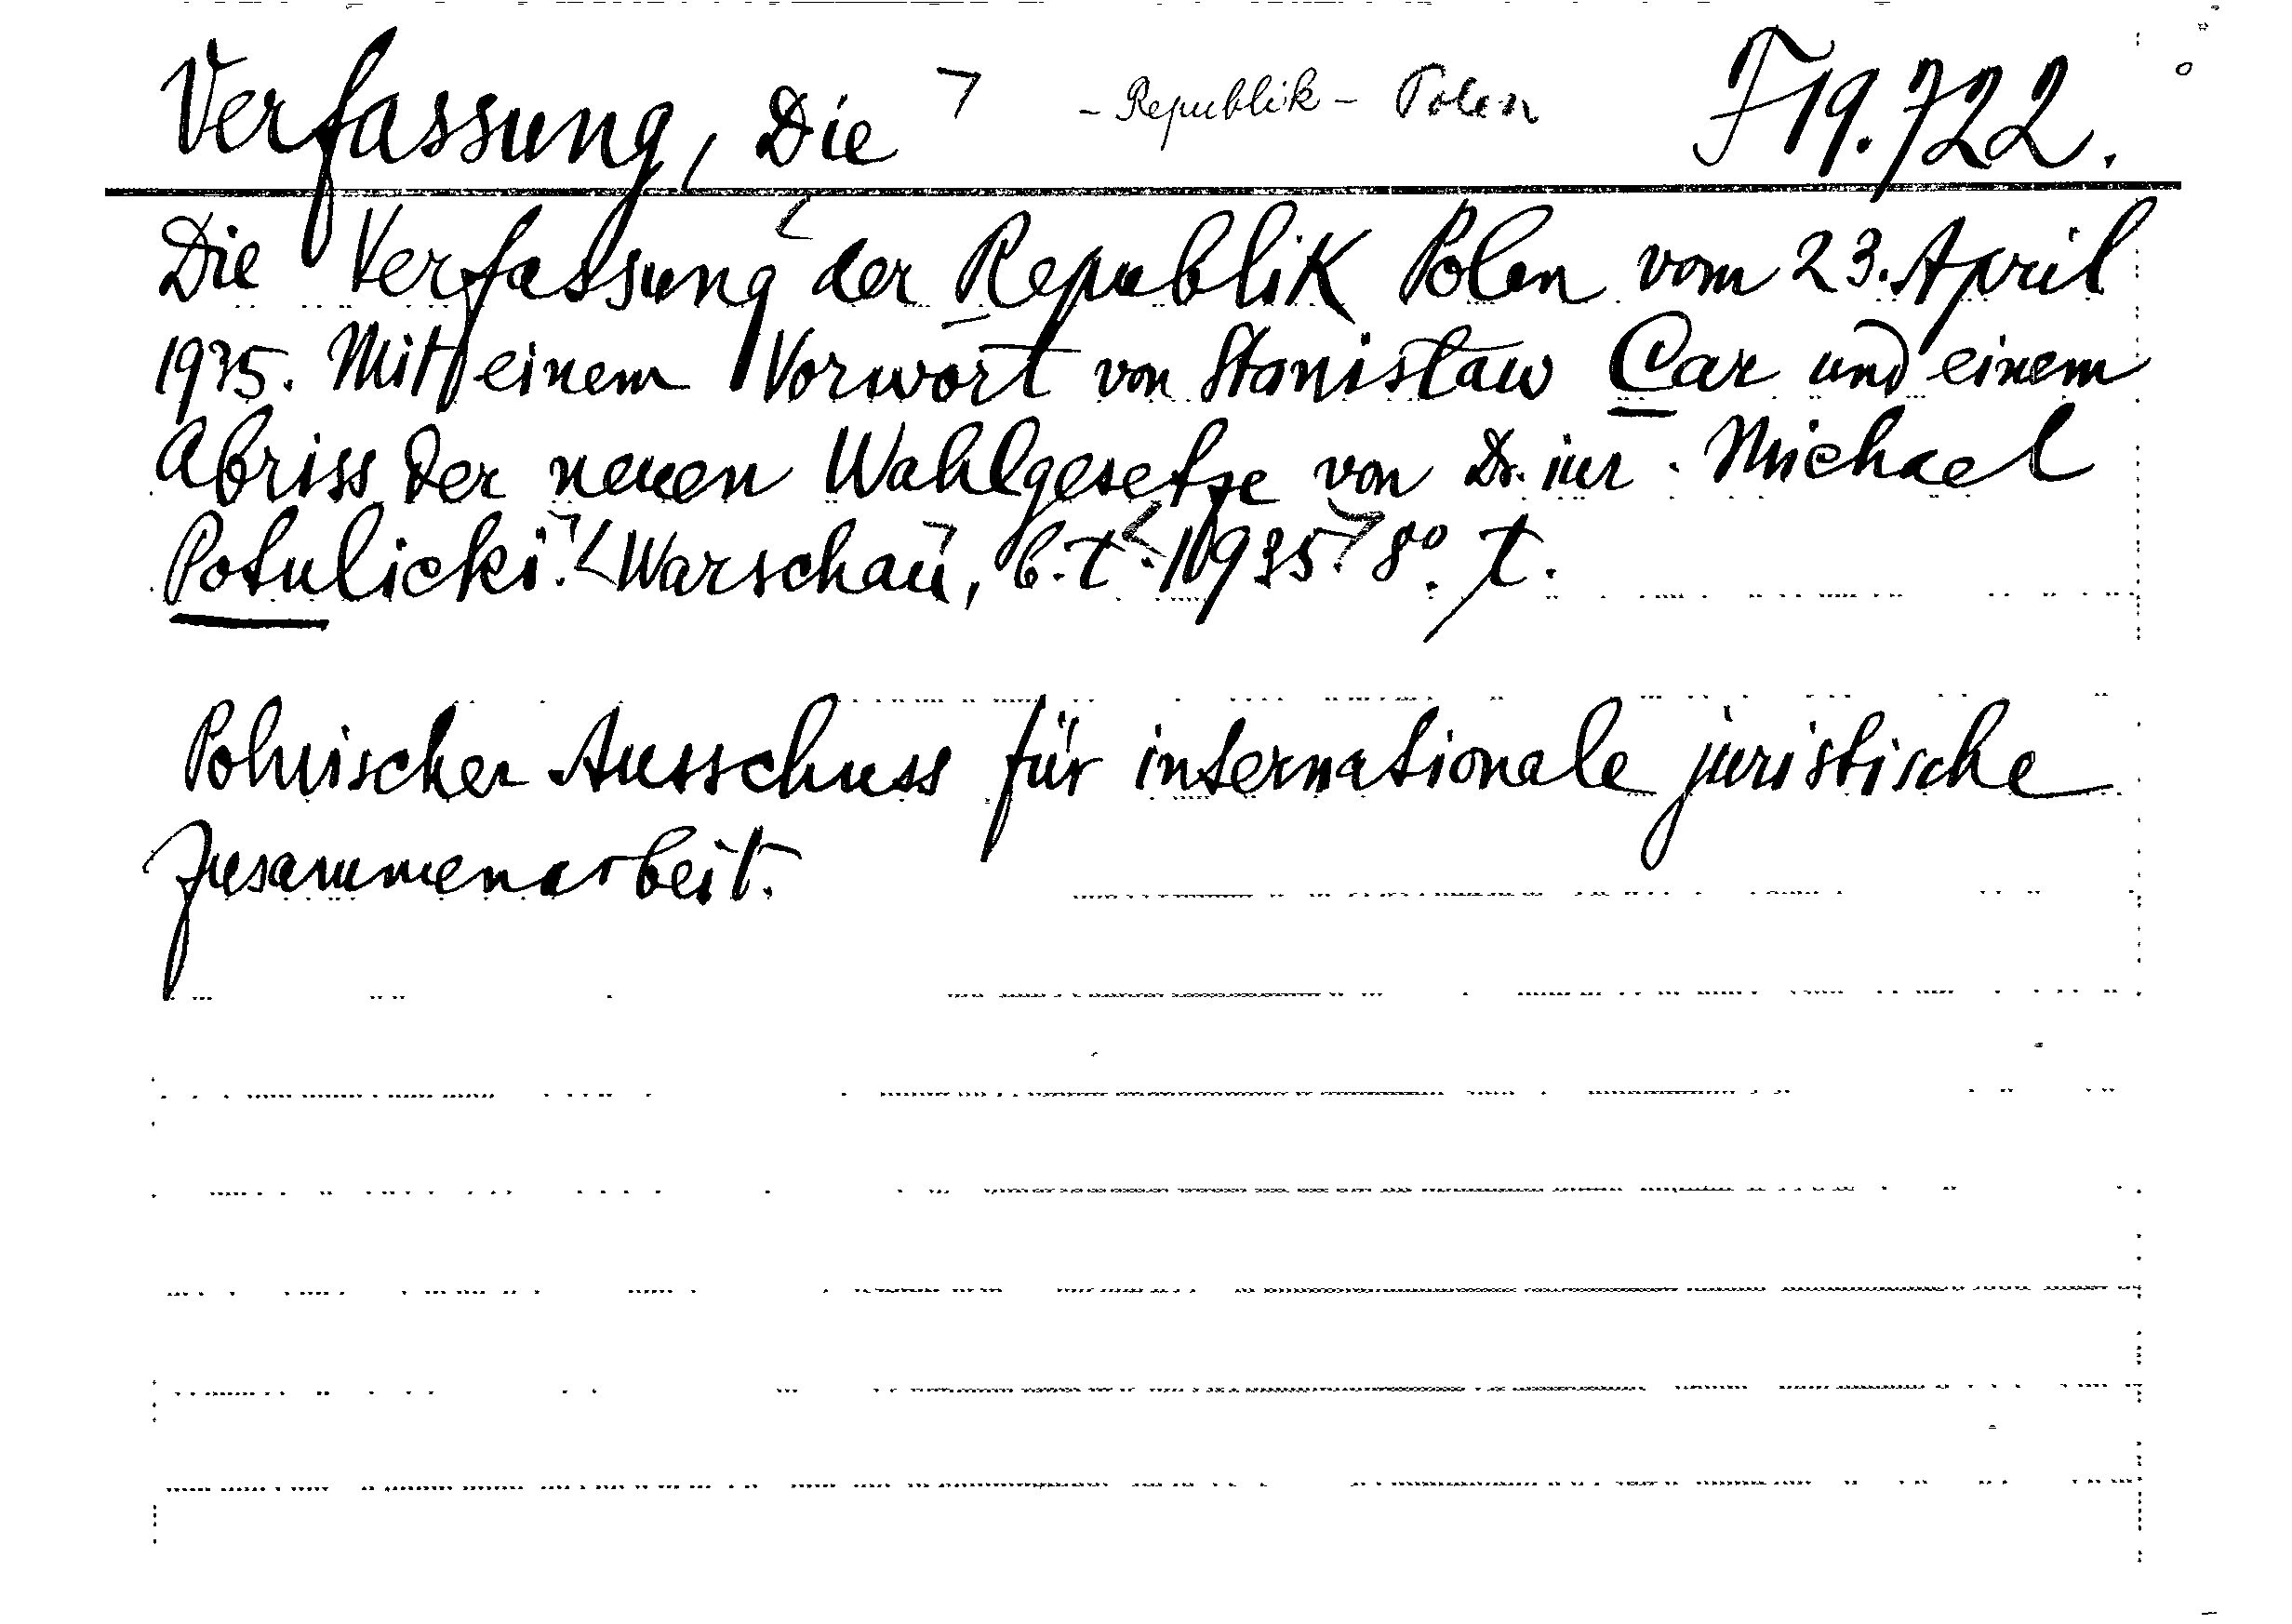 Verfassung, Die - Republik - Polen F 19.722.
Die Verfassung der Republik Polen vom 23. April
1935. Mit einem Vorwort von Stanisław Car und einem
Abriss der neuen Wahlgesetze von Dr. iur. Michael
Potulicki. Warschau, b.t. 1935. 8°. t.
Polnischer Ausschuss für internationale juristische
Zusammenarbeit.